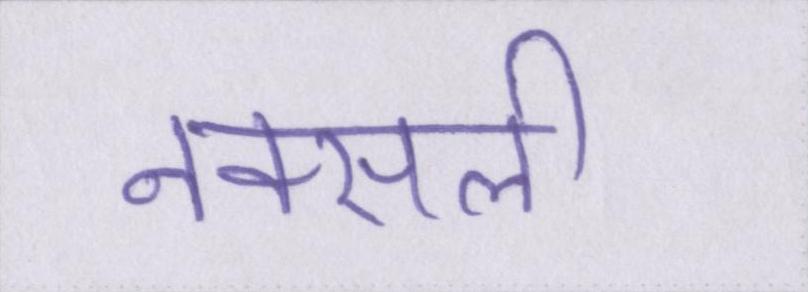 नक्सली